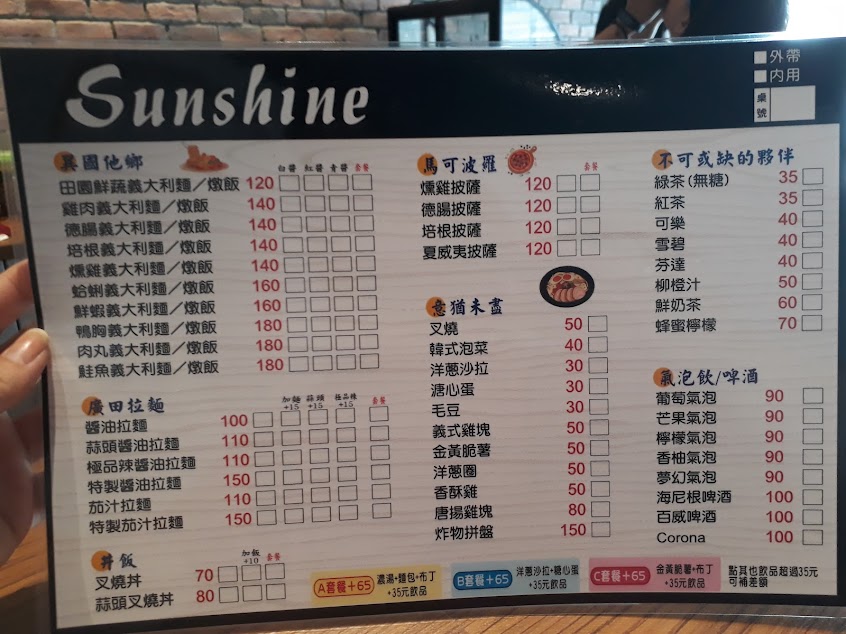 Sunshine
外帶
內用
桌號
異國他鄉 白醬 紅醬 青醬 套餐
田園鮮蔬義大利麵／燉飯 120
雞肉義大利麵／燉飯 140
德腸義大利麵／燉飯 140
培根義大利麵／燉飯 140
燻雞義大利麵／燉飯 140
蛤蜊義大利麵／燉飯 160
鮮蝦義大利麵／燉飯 160
鴨胸義大利麵／燉飯 180
肉丸義大利麵／燉飯 180
鮭魚義大利麵／燉飯 180
廣田拉麵 加麵+15 蒜頭+15 極品辣+15 套餐
醬油拉麵 100
蒜頭醬油拉麵 110
極品辣醬油拉麵 110
特製醬油拉麵 150
茄汁拉麵 110
特製茄汁拉麵 150
丼飯 加飯+10 套餐
叉燒丼 70
蒜頭叉燒丼 80
馬可波羅 套餐
燻雞披薩 120
德腸披薩 120
培根披薩 120
夏威夷披薩 120
意猶未盡
叉燒 50
韓式泡菜 40
洋蔥沙拉 30
溏心蛋 30
毛豆 30
義式雞塊 50
金黃脆薯 50
洋蔥圈 50
香酥雞 50
唐揚雞塊 80
炸物拼盤 150
不可或缺的夥伴
綠茶(無糖) 35
紅茶 35
可樂 40
雪碧 40
芬達 40
柳橙汁 50
鮮奶茶 60
蜂蜜檸檬 70
氣泡飲/啤酒
葡萄氣泡 90
芒果氣泡 90
檸檬氣泡 90
香柚氣泡 90
夢幻氣泡 90
海尼根啤酒 100
百威啤酒 100
Corona 100
A套餐+65 濃湯+麵包+布丁
+35元飲品
B套餐+65 洋蔥沙拉+糖心蛋
+35元飲品
C套餐+65 金黃脆薯+布丁
+35元飲品
點其他飲品超過35元
可補差額